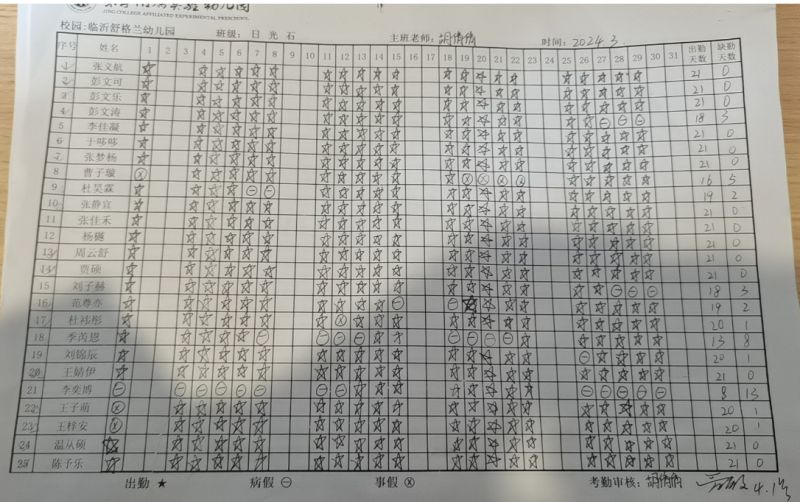 JING COLLEGE AFFILIATED EXPERIMENTAL PRESCHOOL
校园:临沂舒格兰幼儿园 班级:日光石 主班老师:胡倩倩 时间:2024.3
序号 姓名 1 2 3 4 5 6 7 8 9 10 11 12 13 14 15 16 17 18 19 20 21 22 23 24 25 26 27 28 29 30 31 出勤天数 缺勤天数
1 张文航 ☆ ☆ ☆ ☆ ☆ ☆ ☆ ☆ ☆ ☆ ☆ ☆ ☆ ☆ ☆ ☆ ☆ ☆ ☆ ☆ ☆ 21 0
2 彭文可 ☆ ☆ ☆ ☆ ☆ ☆ ☆ ☆ ☆ ☆ ☆ ☆ ☆ ☆ ☆ ☆ ☆ ☆ ☆ ☆ ☆ 21 0
3 彭文乐 ☆ ☆ ☆ ☆ ☆ ☆ ☆ ☆ ☆ ☆ ☆ ☆ ☆ ☆ ☆ ☆ ☆ ☆ ☆ ☆ ☆ 21 0
4 彭文涛 ☆ ☆ ☆ ☆ ☆ ☆ ☆ ☆ ☆ ☆ ☆ ☆ ☆ ☆ ☆ ☆ ☆ ☆ ⊖ ⊖ ⊖ 18 3
5 李佳凝 ☆ ☆ ☆ ☆ ☆ ☆ ☆ ☆ ☆ ☆ ☆ ☆ ☆ ☆ ☆ ☆ ☆ ☆ ☆ ☆ ☆ 21 0
6 于哆哆 ☆ ☆ ☆ ☆ ☆ ☆ ☆ ☆ ☆ ☆ ☆ ☆ ☆ ☆ ☆ ☆ ☆ ☆ ☆ ☆ ☆ 21 0
7 张梦杨 ☆ ☆ ☆ ☆ ☆ ☆ ☆ ☆ ☆ ☆ ☆ ☆ ☆ ☆ ☆ ☆ ☆ ☆ ☆ ☆ ☆ 21 0
8 曹子璇 ⊗ ☆ ☆ ☆ ☆ ☆ ☆ ☆ ☆ ☆ ☆ ☆ ⊗ ⊗ ⊗ ⊗ ☆ ☆ ☆ ☆ ☆ 16 5
9 杜昊霖 ☆ ☆ ☆ ☆ ⊖ ⊖ ☆ ☆ ☆ ☆ ☆ ☆ ☆ ☆ ☆ ☆ ☆ ☆ ☆ ☆ ☆ 19 2
10 张静宜 ☆ ☆ ☆ ☆ ☆ ☆ ☆ ☆ ☆ ☆ ☆ ☆ ☆ ☆ ☆ ☆ ☆ ☆ ☆ ☆ ☆ 21 0
11 张佳禾 ☆ ☆ ☆ ☆ ☆ ☆ ☆ ☆ ☆ ☆ ☆ ☆ ☆ ☆ ☆ ☆ ☆ ☆ ☆ ☆ ☆ 21 0
12 杨樾 ☆ ☆ ☆ ☆ ☆ ☆ ☆ ☆ ☆ ☆ ☆ ☆ ☆ ☆ ☆ ☆ ☆ ☆ ☆ ☆ ☆ 21 0
13 周云舒 ☆ ☆ ☆ ☆ ☆ ☆ ☆ ☆ ☆ ☆ ☆ ☆ ☆ ☆ ☆ ☆ ☆ ☆ ☆ ☆ ☆ 21 0
14 贾硕 ☆ ☆ ☆ ☆ ☆ ☆ ☆ ☆ ☆ ☆ ☆ ☆ ☆ ☆ ☆ ☆ ☆ ☆ ☆ ☆ ☆ 21 0
15 刘子赫 ☆ ☆ ☆ ☆ ☆ ☆ ☆ ☆ ☆ ☆ ☆ ☆ ☆ ☆ ☆ ☆ ☆ ☆ ⊖ ⊖ ⊖ 18 3
16 范尊亦 ☆ ☆ ☆ ☆ ☆ ☆ ☆ ☆ ☆ ☆ ⊖ ⊖ ☆ ☆ ☆ ☆ ☆ ☆ ☆ ☆ ☆ 19 2
17 杜祎彤 ☆ ☆ ☆ ☆ ☆ ☆ ☆ ⊗ ☆ ☆ ☆ ☆ ☆ ☆ ☆ ☆ ☆ ☆ ☆ ☆ ☆ 20 1
18 季芮恩 ☆ ☆ ☆ ☆ ☆ ⊖ ⊖ ⊖ ⊖ ☆ ☆ ⊖ ⊖ ⊖ ⊖ ☆ ☆ ☆ ☆ ☆ ☆ 13 8
19 刘锦辰 ☆ ☆ ☆ ☆ ☆ ☆ ☆ ☆ ☆ ☆ ☆ ☆ ☆ ☆ ☆ ☆ ⊖ ☆ ☆ ☆ ☆ 20 1
20 王婧伊 ☆ ☆ ☆ ☆ ☆ ☆ ☆ ☆ ☆ ☆ ☆ ☆ ☆ ☆ ☆ ☆ ☆ ☆ ☆ ☆ ☆ 21 0
21 李奕博 ⊖ ⊖ ⊖ ⊖ ⊖ ⊖ ⊖ ⊖ ☆ ☆ ☆ ☆ ☆ ☆ ☆ ☆ ⊖ ⊖ ⊖ ⊖ ⊖ 8 13
22 王子萌 ⊗ ☆ ☆ ☆ ☆ ☆ ☆ ☆ ☆ ☆ ☆ ☆ ☆ ☆ ☆ ☆ ☆ ☆ ☆ ☆ ☆ 20 1
23 王梓安 ⊗ ☆ ☆ ☆ ☆ ☆ ☆ ☆ ☆ ☆ ☆ ☆ ☆ ☆ ☆ ☆ ☆ ☆ ☆ ☆ ☆ 20 1
24 温从硕 ☆ ☆ ☆ ☆ ☆ ☆ ☆ ☆ ☆ ☆ ☆ ☆ ☆ ☆ ☆ ☆ ☆ ☆ ☆ ☆ ☆ 21 0
25 陈予乐 ☆ ☆ ☆ ☆ ☆ ☆ ☆ ☆ ☆ ☆ ☆ ☆ ☆ ☆ ☆ ☆ ☆ ☆ ☆ ☆ ☆ 21 0
出勤 ★ 病假 ⊖ 事假 ⊗ 考勤审核:胡倩倩 4.1号